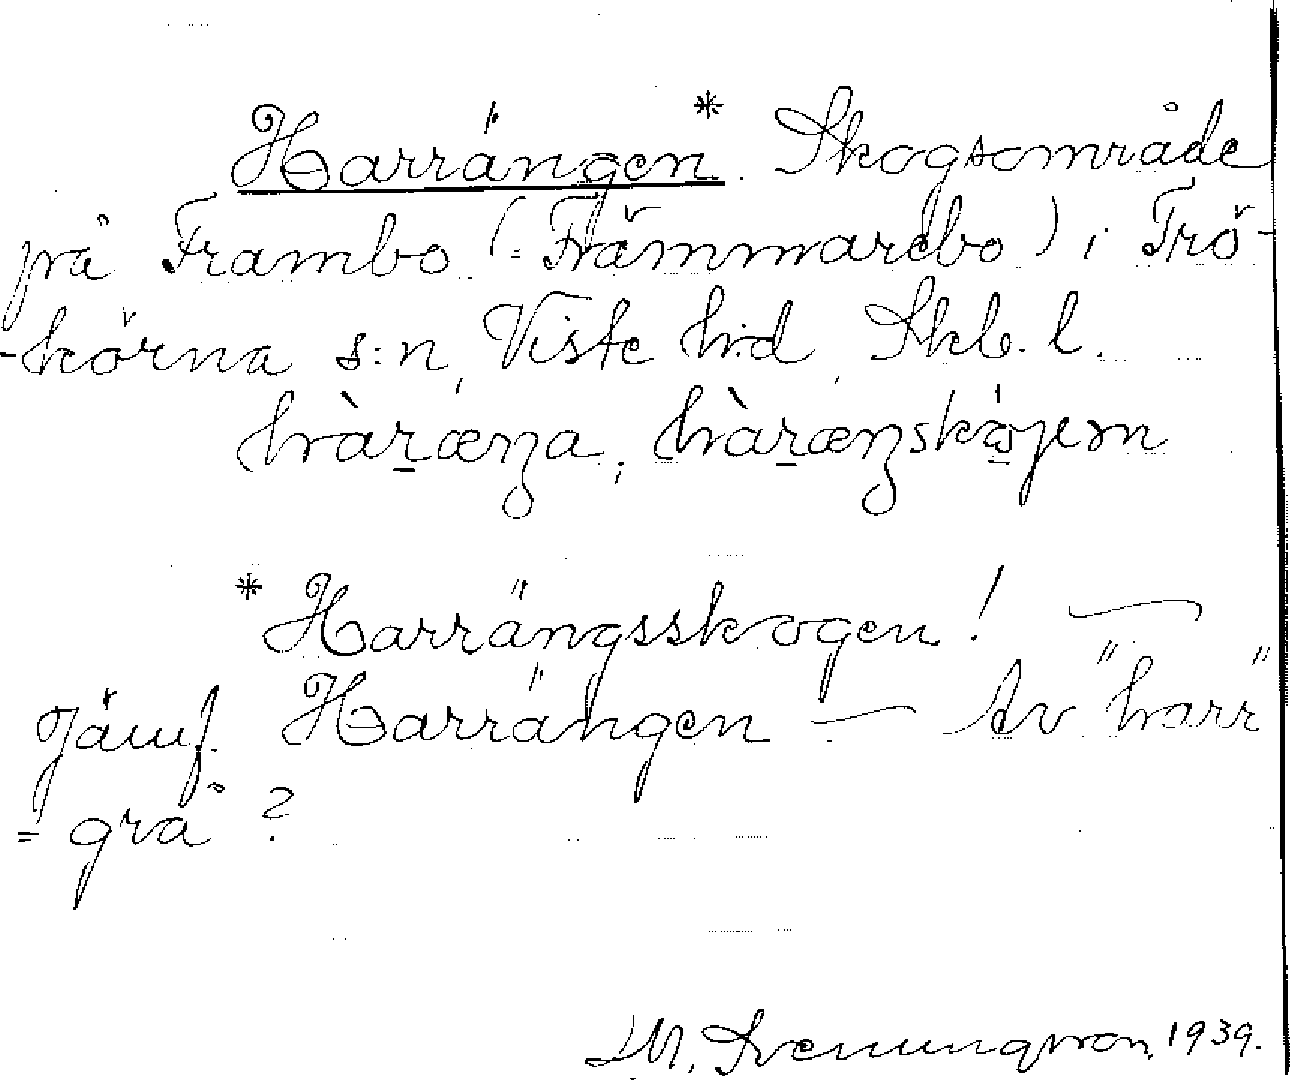 Harrängen*. Skogsområde
på Frambo (= Främmarebo) i Trö-
-körna s:n, Viste hd, Skb. l.
hàræŋa, hàræŋskójem
*Harrängsskogen! —
Jämf. Harrängen — Av "harr"
= grå?
M. Svenungsson, 1939.